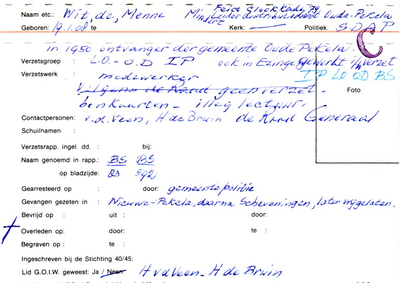 Naam etc.: Wit, de, Menne M. Feico Clockkade, 84
Leider distributiedienst Oude-Pekela
Geboren: 19.1.08 te Kerk: Politiek: S.D.A.P
in 1950 ontvanger der gemeente Oude Pekela C
Verzetsgroep L.O.-O.D IP ook in Ezinge gewerkt i/h verzet
Verzetswerk medewerker IP LO OD BS
Volgens de Raad geen verzet. Foto
bonkaarten - illeg lectuur.
Contactpersonen: v.d. Veen, H de Bruin de Raad Generaal
Schuilnamen :
Verzetsrapp. ingel. dd. : bij:
Naam genoemd in rapp.: BS BS
op bladzijde: 83 592
Gearresteerd op : door: gemeentepolitie
Gevangen gezeten in : Nieuwe-Pekela, daarna Scheveningen, later vrijgelaten.
Bevrijd op : uit : door:
Overleden op: door: te :
Begraven op : te :
Ingeschreven bij de Stichting 40/45:
Lid G.O.I.W. geweest: Ja / Neen H v d Veen - H de Bruin